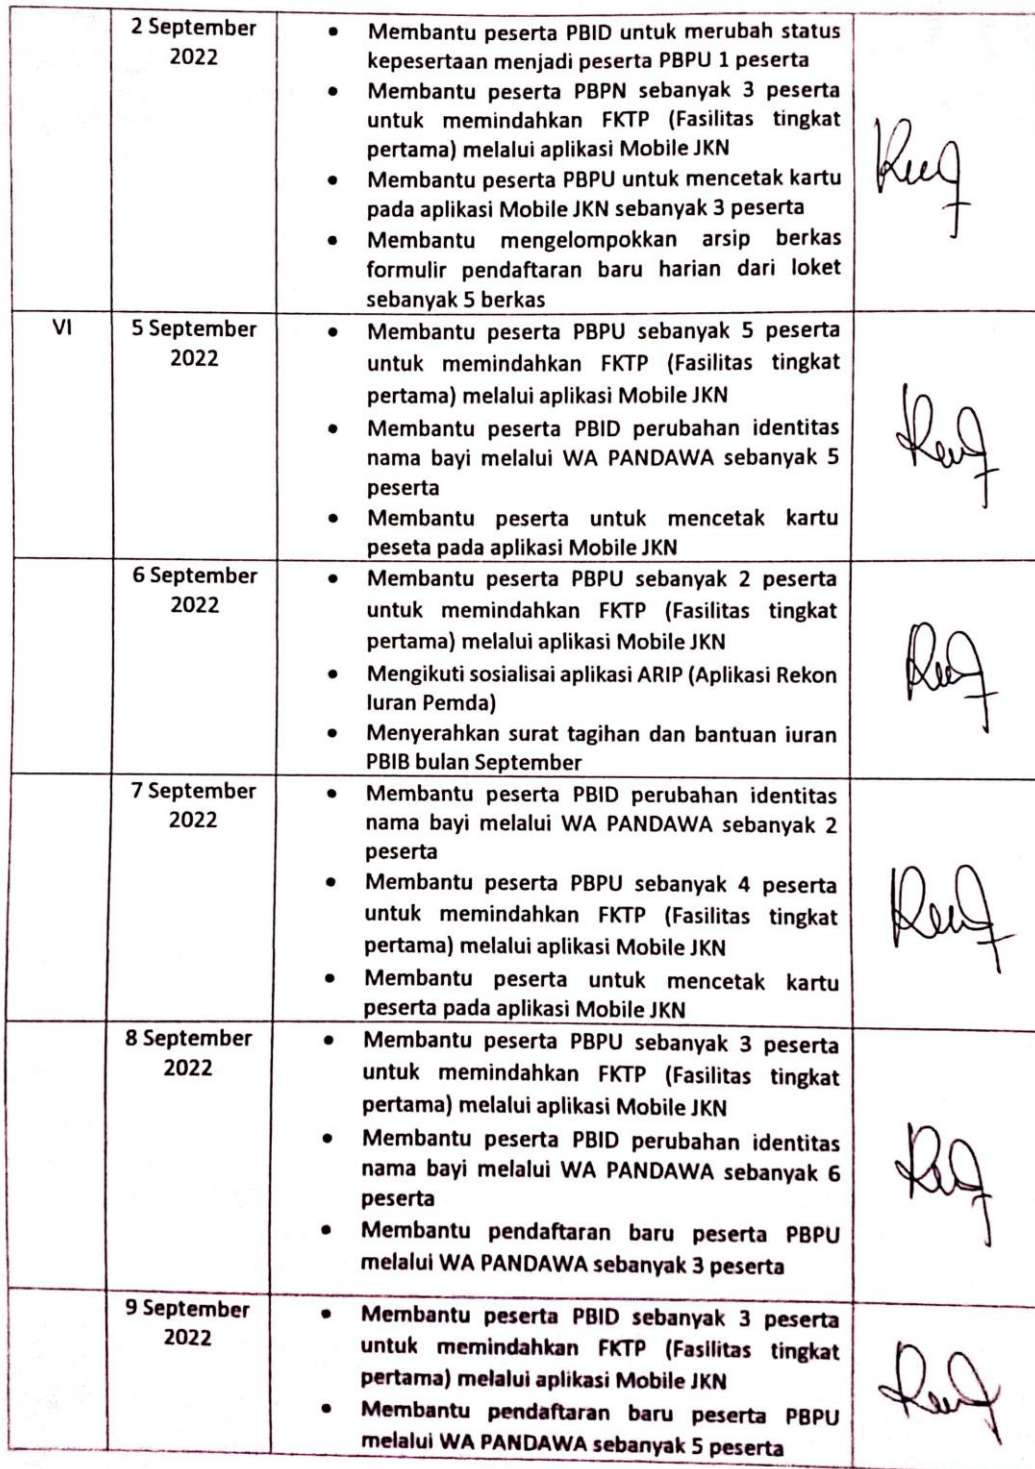 2 September
2022
• Membantu peserta PBID untuk merubah status
kepesertaan menjadi peserta PBPU 1 peserta
• Membantu peserta PBPN sebanyak 3 peserta
untuk memindahkan FKTP (Fasilitas tingkat
pertama) melalui aplikasi Mobile JKN
• Membantu peserta PBPU untuk mencetak kartu
pada aplikasi Mobile JKN sebanyak 3 peserta
• Membantu mengelompokkan arsip berkas
formulir pendaftaran baru harian dari loket
sebanyak 5 berkas
VI
5 September
2022
• Membantu peserta PBPU sebanyak 5 peserta
untuk memindahkan FKTP (Fasilitas tingkat
pertama) melalui aplikasi Mobile JKN
• Membantu peserta PBID perubahan identitas
nama bayi melalui WA PANDAWA sebanyak 5
peserta
• Membantu peserta untuk mencetak kartu
peseta pada aplikasi Mobile JKN
6 September
2022
• Membantu peserta PBPU sebanyak 2 peserta
untuk memindahkan FKTP (Fasilitas tingkat
pertama) melalui aplikasi Mobile JKN
• Mengikuti sosialisai aplikasi ARIP (Aplikasi Rekon
Iuran Pemda)
• Menyerahkan surat tagihan dan bantuan iuran
PBIB bulan September
7 September
2022
• Membantu peserta PBID perubahan identitas
nama bayi melalui WA PANDAWA sebanyak 2
peserta
• Membantu peserta PBPU sebanyak 4 peserta
untuk memindahkan FKTP (Fasilitas tingkat
pertama) melalui aplikasi Mobile JKN
• Membantu peserta untuk mencetak kartu
peserta pada aplikasi Mobile JKN
8 September
2022
• Membantu peserta PBPU sebanyak 3 peserta
untuk memindahkan FKTP (Fasilitas tingkat
pertama) melalui aplikasi Mobile JKN
• Membantu peserta PBID perubahan identitas
nama bayi melalui WA PANDAWA sebanyak 6
peserta
• Membantu pendaftaran baru peserta PBPU
melalui WA PANDAWA sebanyak 3 peserta
9 September
2022
• Membantu peserta PBID sebanyak 3 peserta
untuk memindahkan FKTP (Fasilitas tingkat
pertama) melalui aplikasi Mobile JKN
• Membantu pendaftaran baru peserta PBPU
melalui WA PANDAWA sebanyak 5 peserta